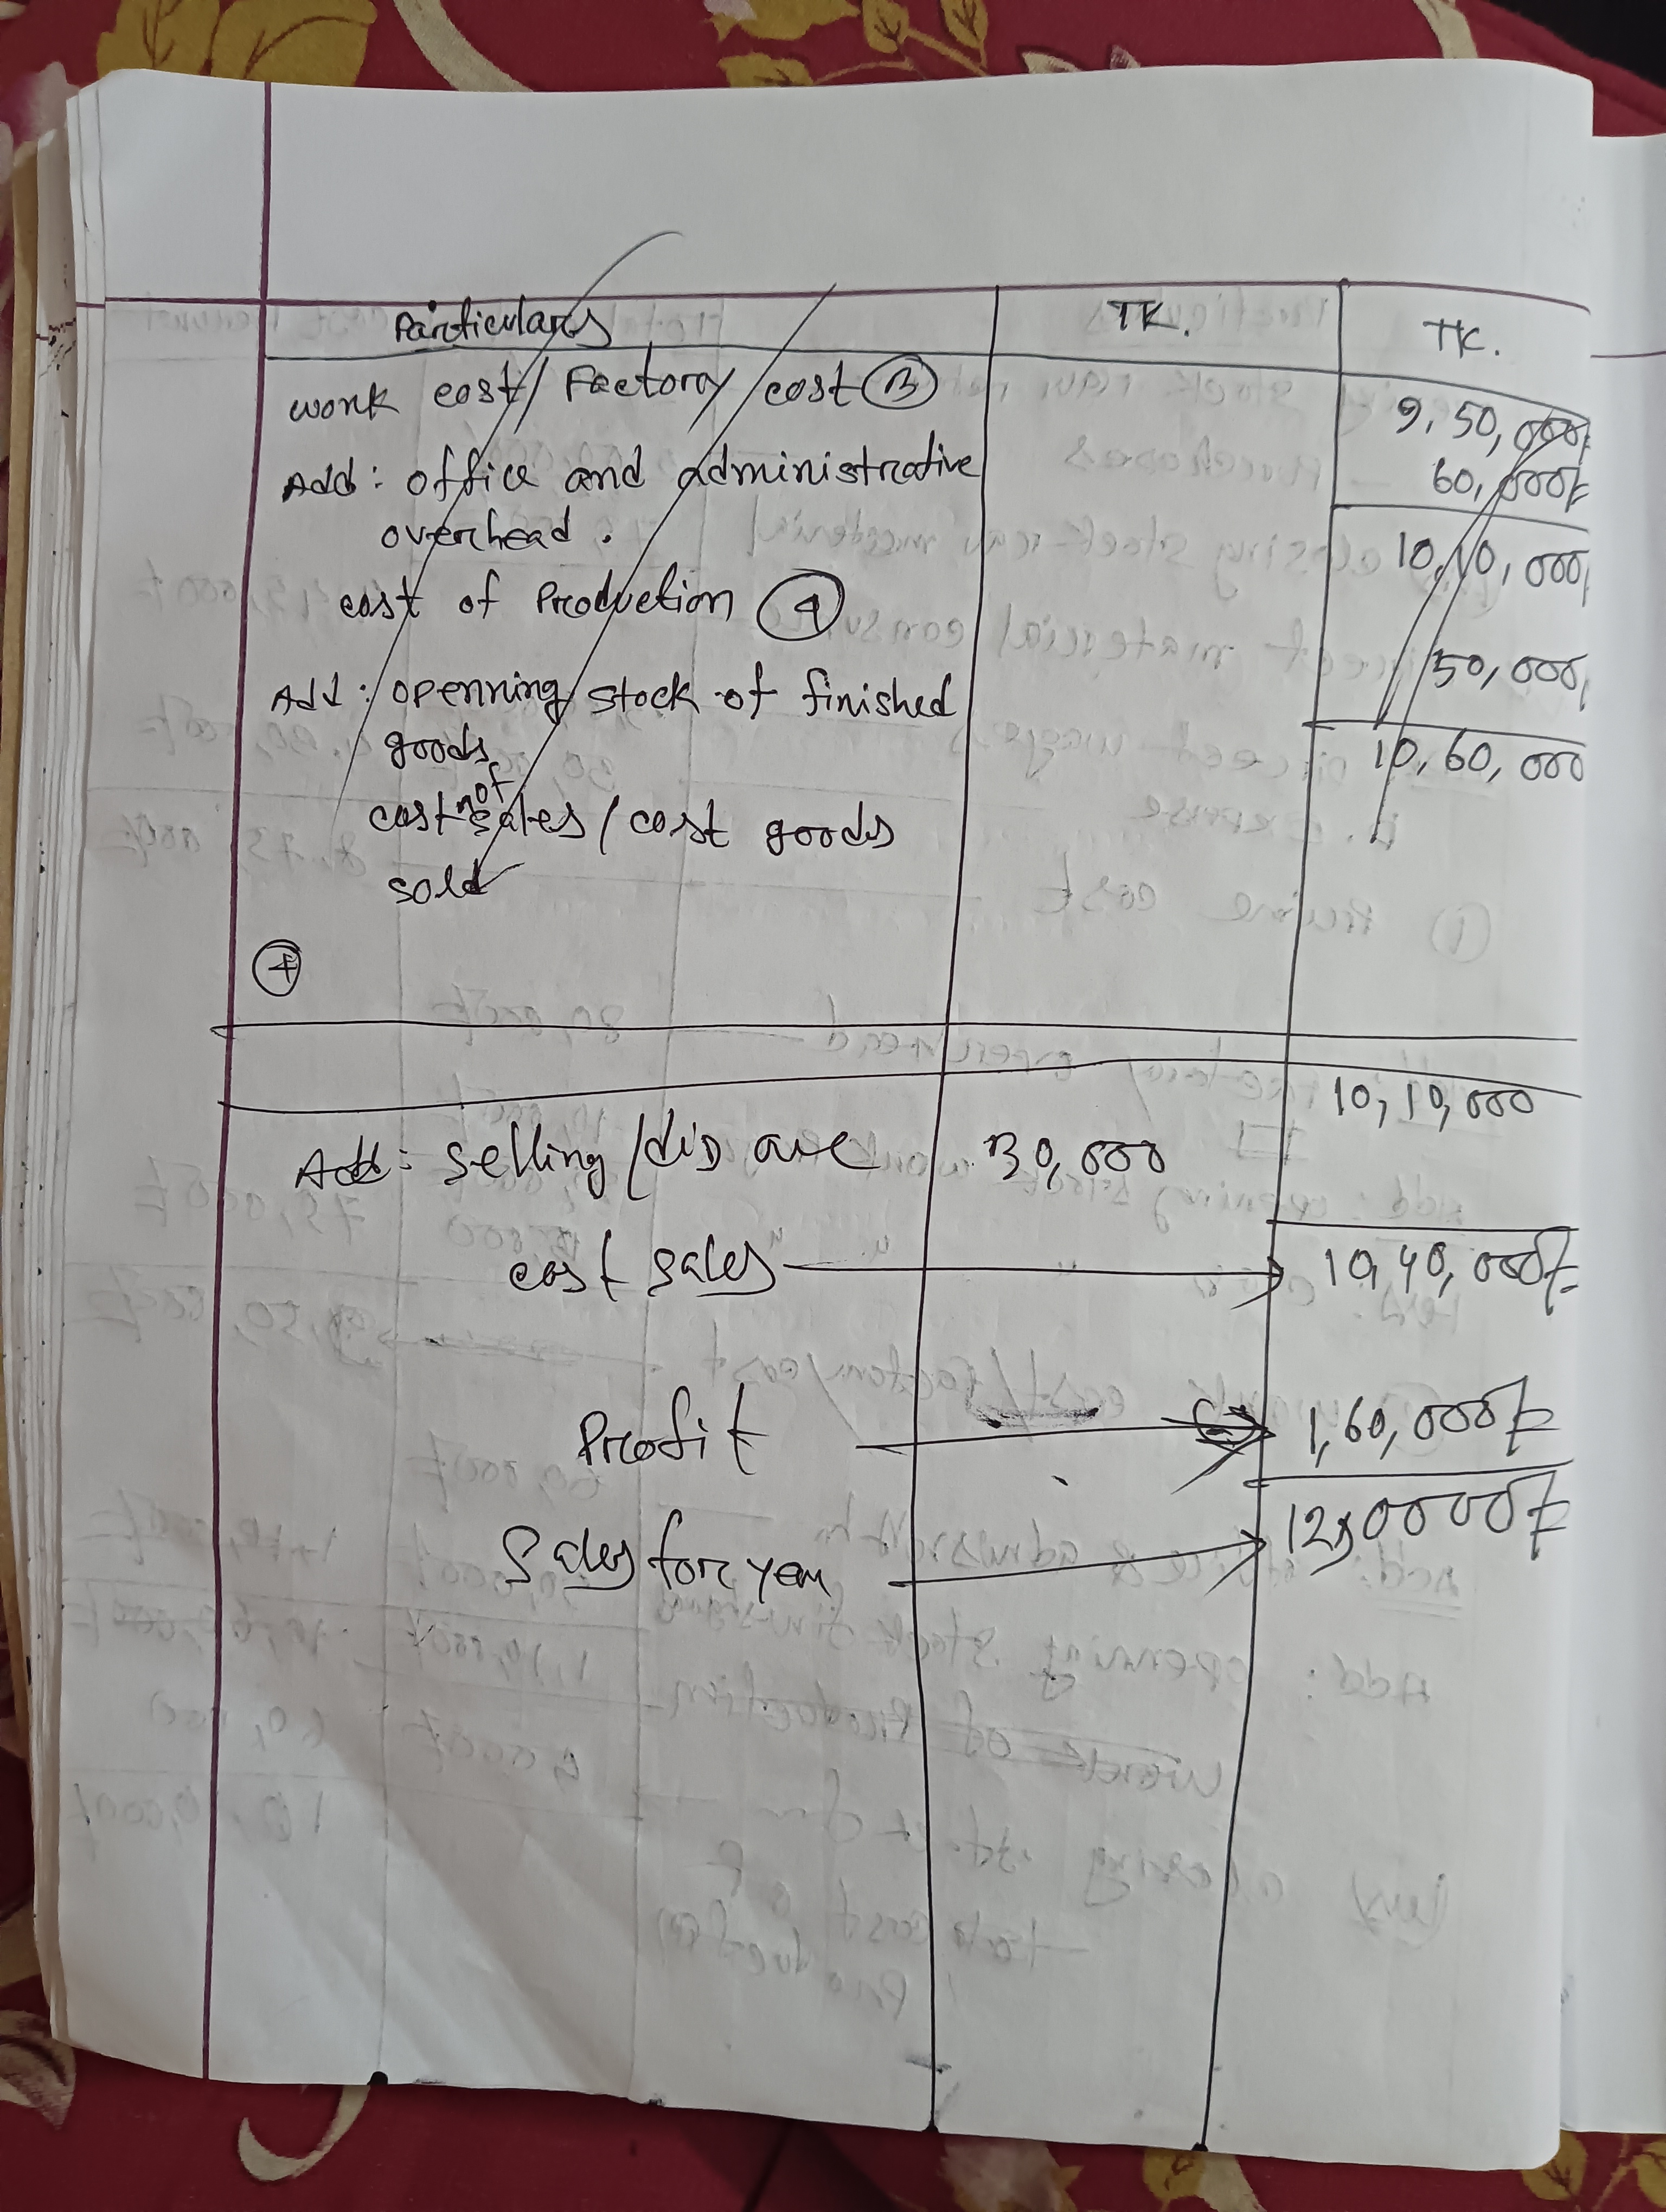 Particulars TK. TK.
work cost / Factory cost ③ 9,50,000/-
Add : office and administrative 60,000/-
overhead .
cost of Production ④ 10,10,000
Add : openning stock of finished 50,000
goods
cost of sales / cost goods 10,60,000
sold
④
10,10,000
Add : selling / dis 30,000
cost sales 10,40,000/-
Profit 1,60,000/-
Sales for year 12,00000/-